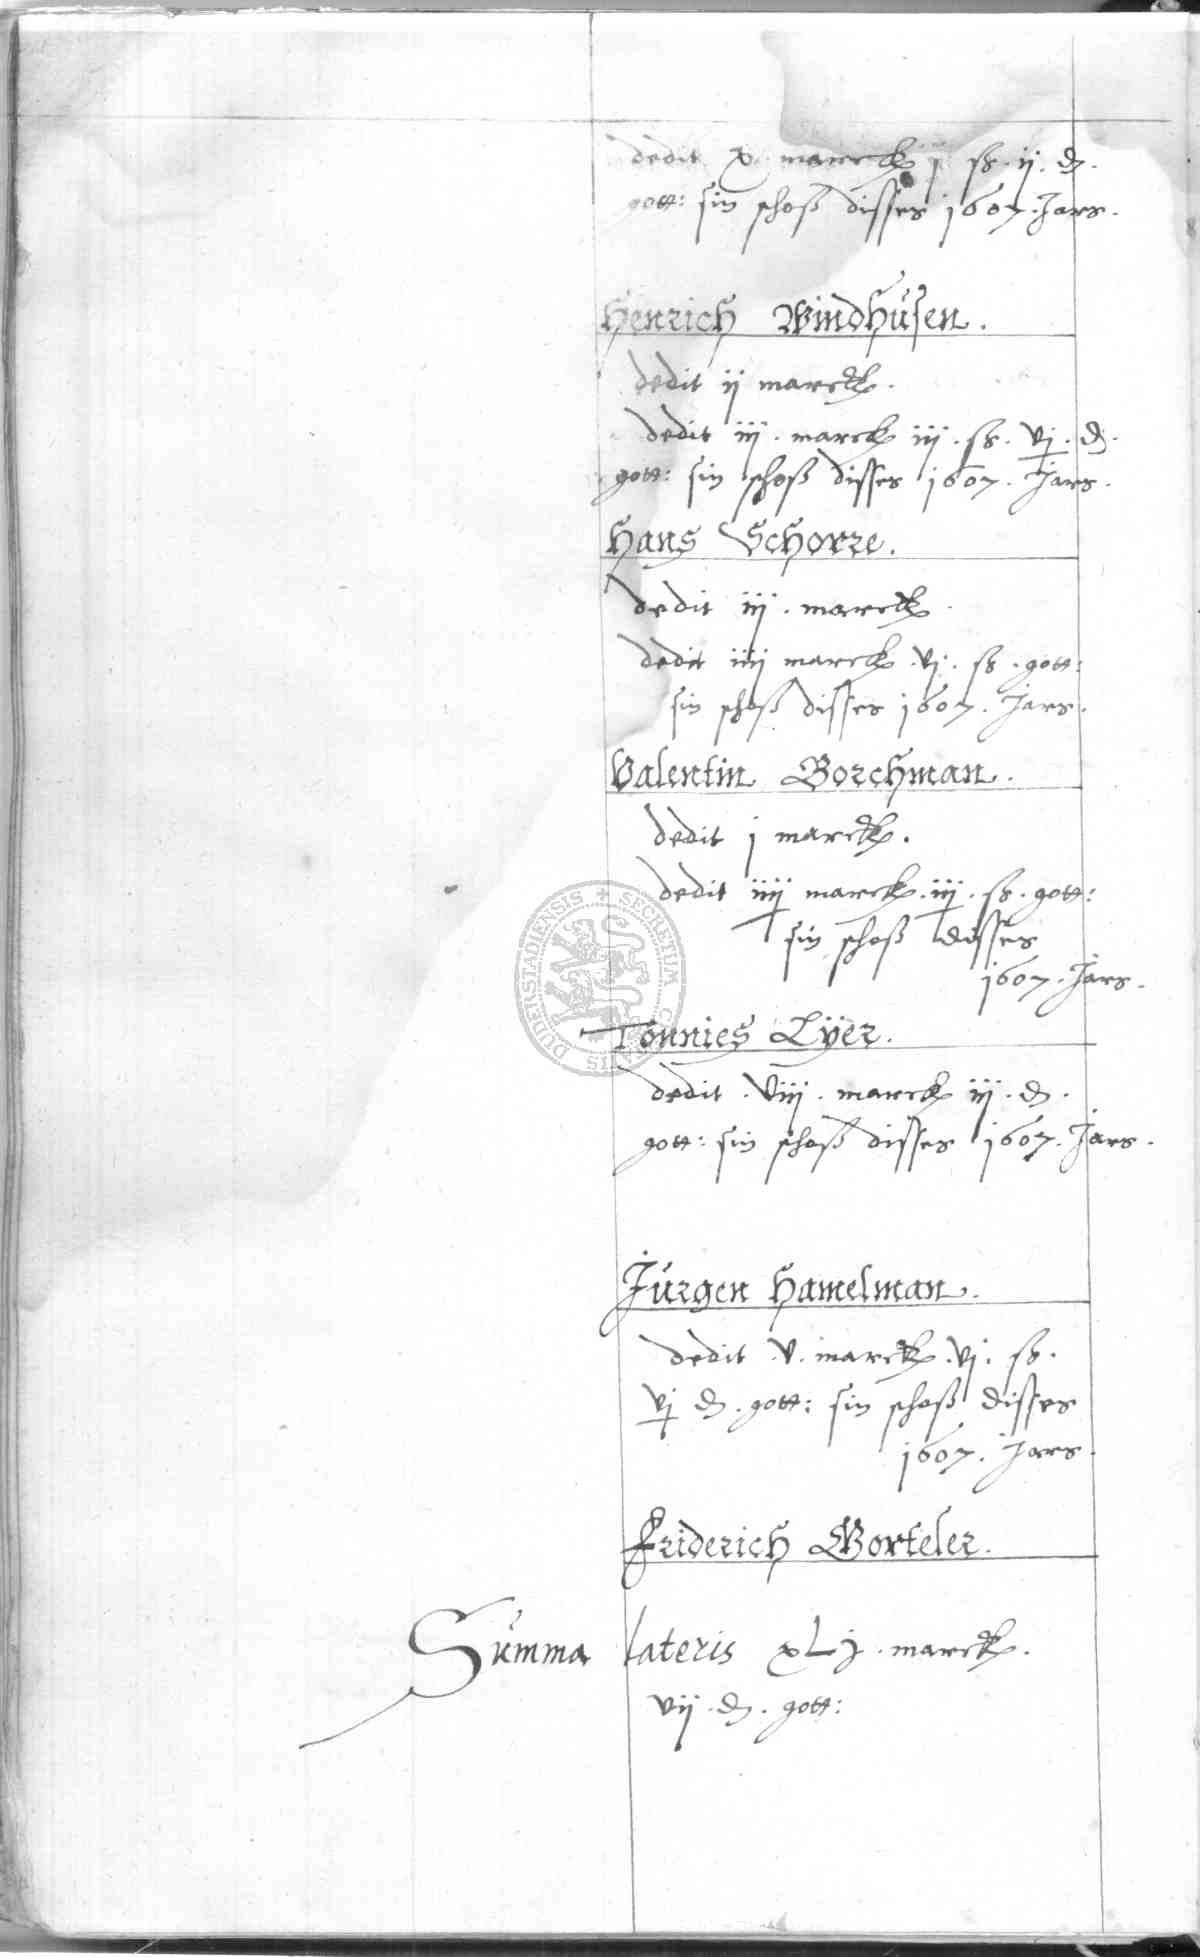 dedit x marck j ß ij ₰.
gott: sin schoß disses 1607 Jars.
Henrich Windhüsen.
dedit ij marck.
dedit iij. marck iij. ß. vj. ₰.
gott: sin schoß disses 1607. Jars.
Hans Schorze.
dedit iij. marck
dedit iiij marck vj. ß. gott:
sin schoß disses 1607. Jars.
Valentin Borchman.
dedit j marck.
dedit iiij marck. iij. ß. gott:
sin schoß disses
1607. Jars.
Tönnies Lÿer.
dedit. viij. marck iij. ₰.
gott: sin schoß disses 1607. Jars.
Jürgen Hamelman.
dedit. v. marck. vj. ß.
vj ₰. gott: sin schoß disses
1607. Jars.
Friderich Gorteler.
Summa lateris xLj. marck.
vij. ₰. gott:
SECRETUM
DUDERSTADIENSIS